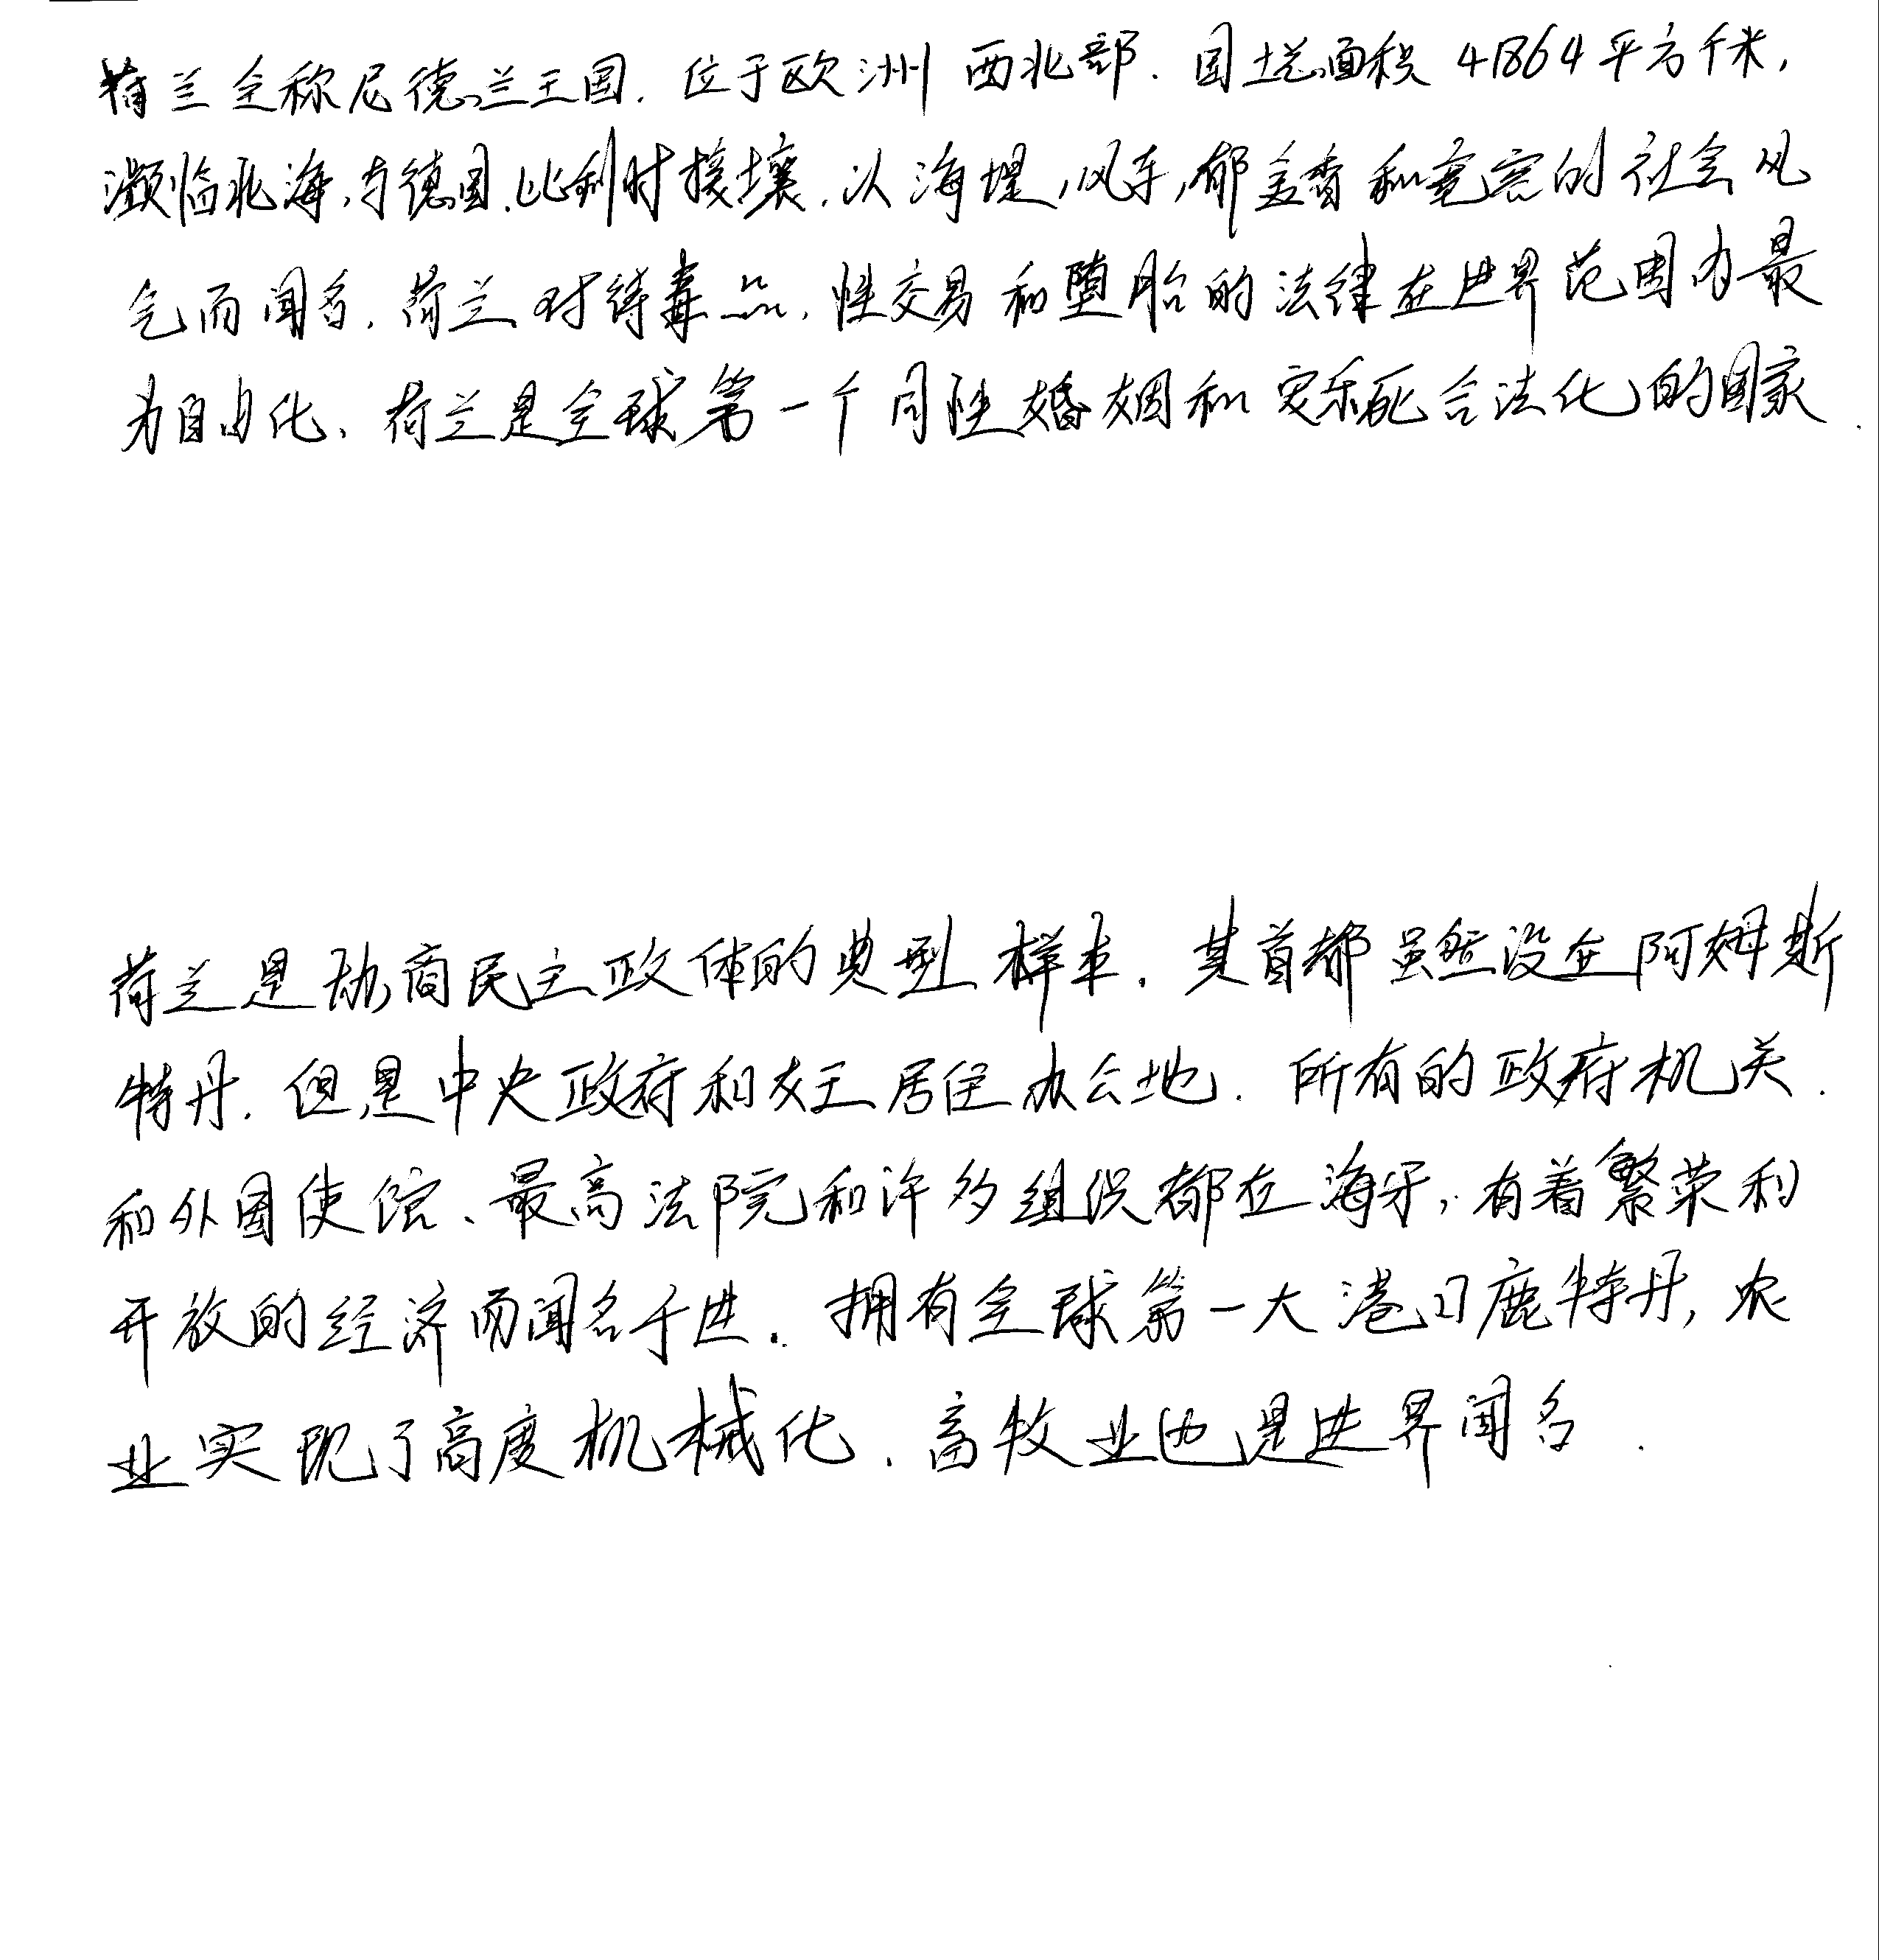 荷兰全称尼德兰王国.位于欧洲西北部.国土总面积41864平方千米,
濒临北海,与德国.比利时接壤.以海堤,风车,郁金香和宽容的社会风
气而闻名.荷兰对待毒品.性交易和堕胎的法律在世界范围内最
为自由化、荷兰是全球第一个同性婚姻和安乐死合法化的国家.
荷兰是 商民主政体的典型样本.其首都虽然设在阿姆斯
特丹.但是中央政府和女王居住办公地.所有的政府机关.
和外国使馆、最高法院和许多组织都在海牙,有着繁荣和
开放的经济而闻名于世.拥有全球第一大港口鹿特丹,农
业实现了高度机械化.畜牧业也是世界闻名.